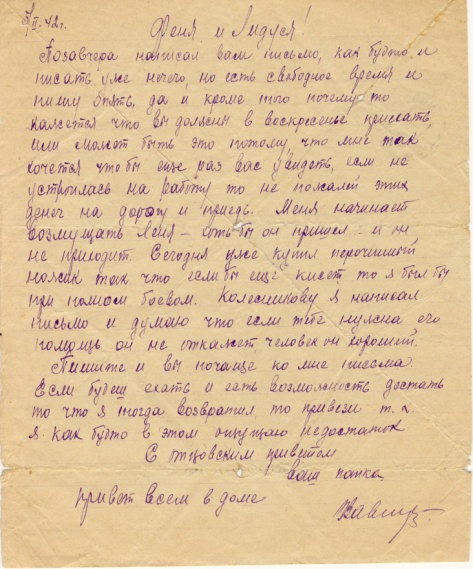 5/II-42 г.
Феня и Лидуся!
Позавчера написал вам письмо, как будто и
писать уже нечего, но есть свободное время и
пишу опять, да и кроме того почему то
кажется что вы должны в воскресенье приехать,
или может быть это потому, что мне так
хочется что бы еще раз вас увидеть, если не
устроилась на работу то не пожалей этих
денег на дорогу и приедь. Меня начинает
возмущать Леня – хоть бы он пришел и он
не приходит. Сегодня уже купил перочинный
ножик так что если бы еще кисет, то я был бы
при полном боевом. Колесникову я написал
письмо и думаю что если тебе нужна его
помощь он не откажет, человек он хороший.
Пишите и вы почаще ко мне письма.
Если будеш ехать и есть возможность достать
то что я тогда возвратил, то привези т. к.
я как будто в этом ощущаю недостаток
С отцовским приветом
ваш папка
привет всем в доме